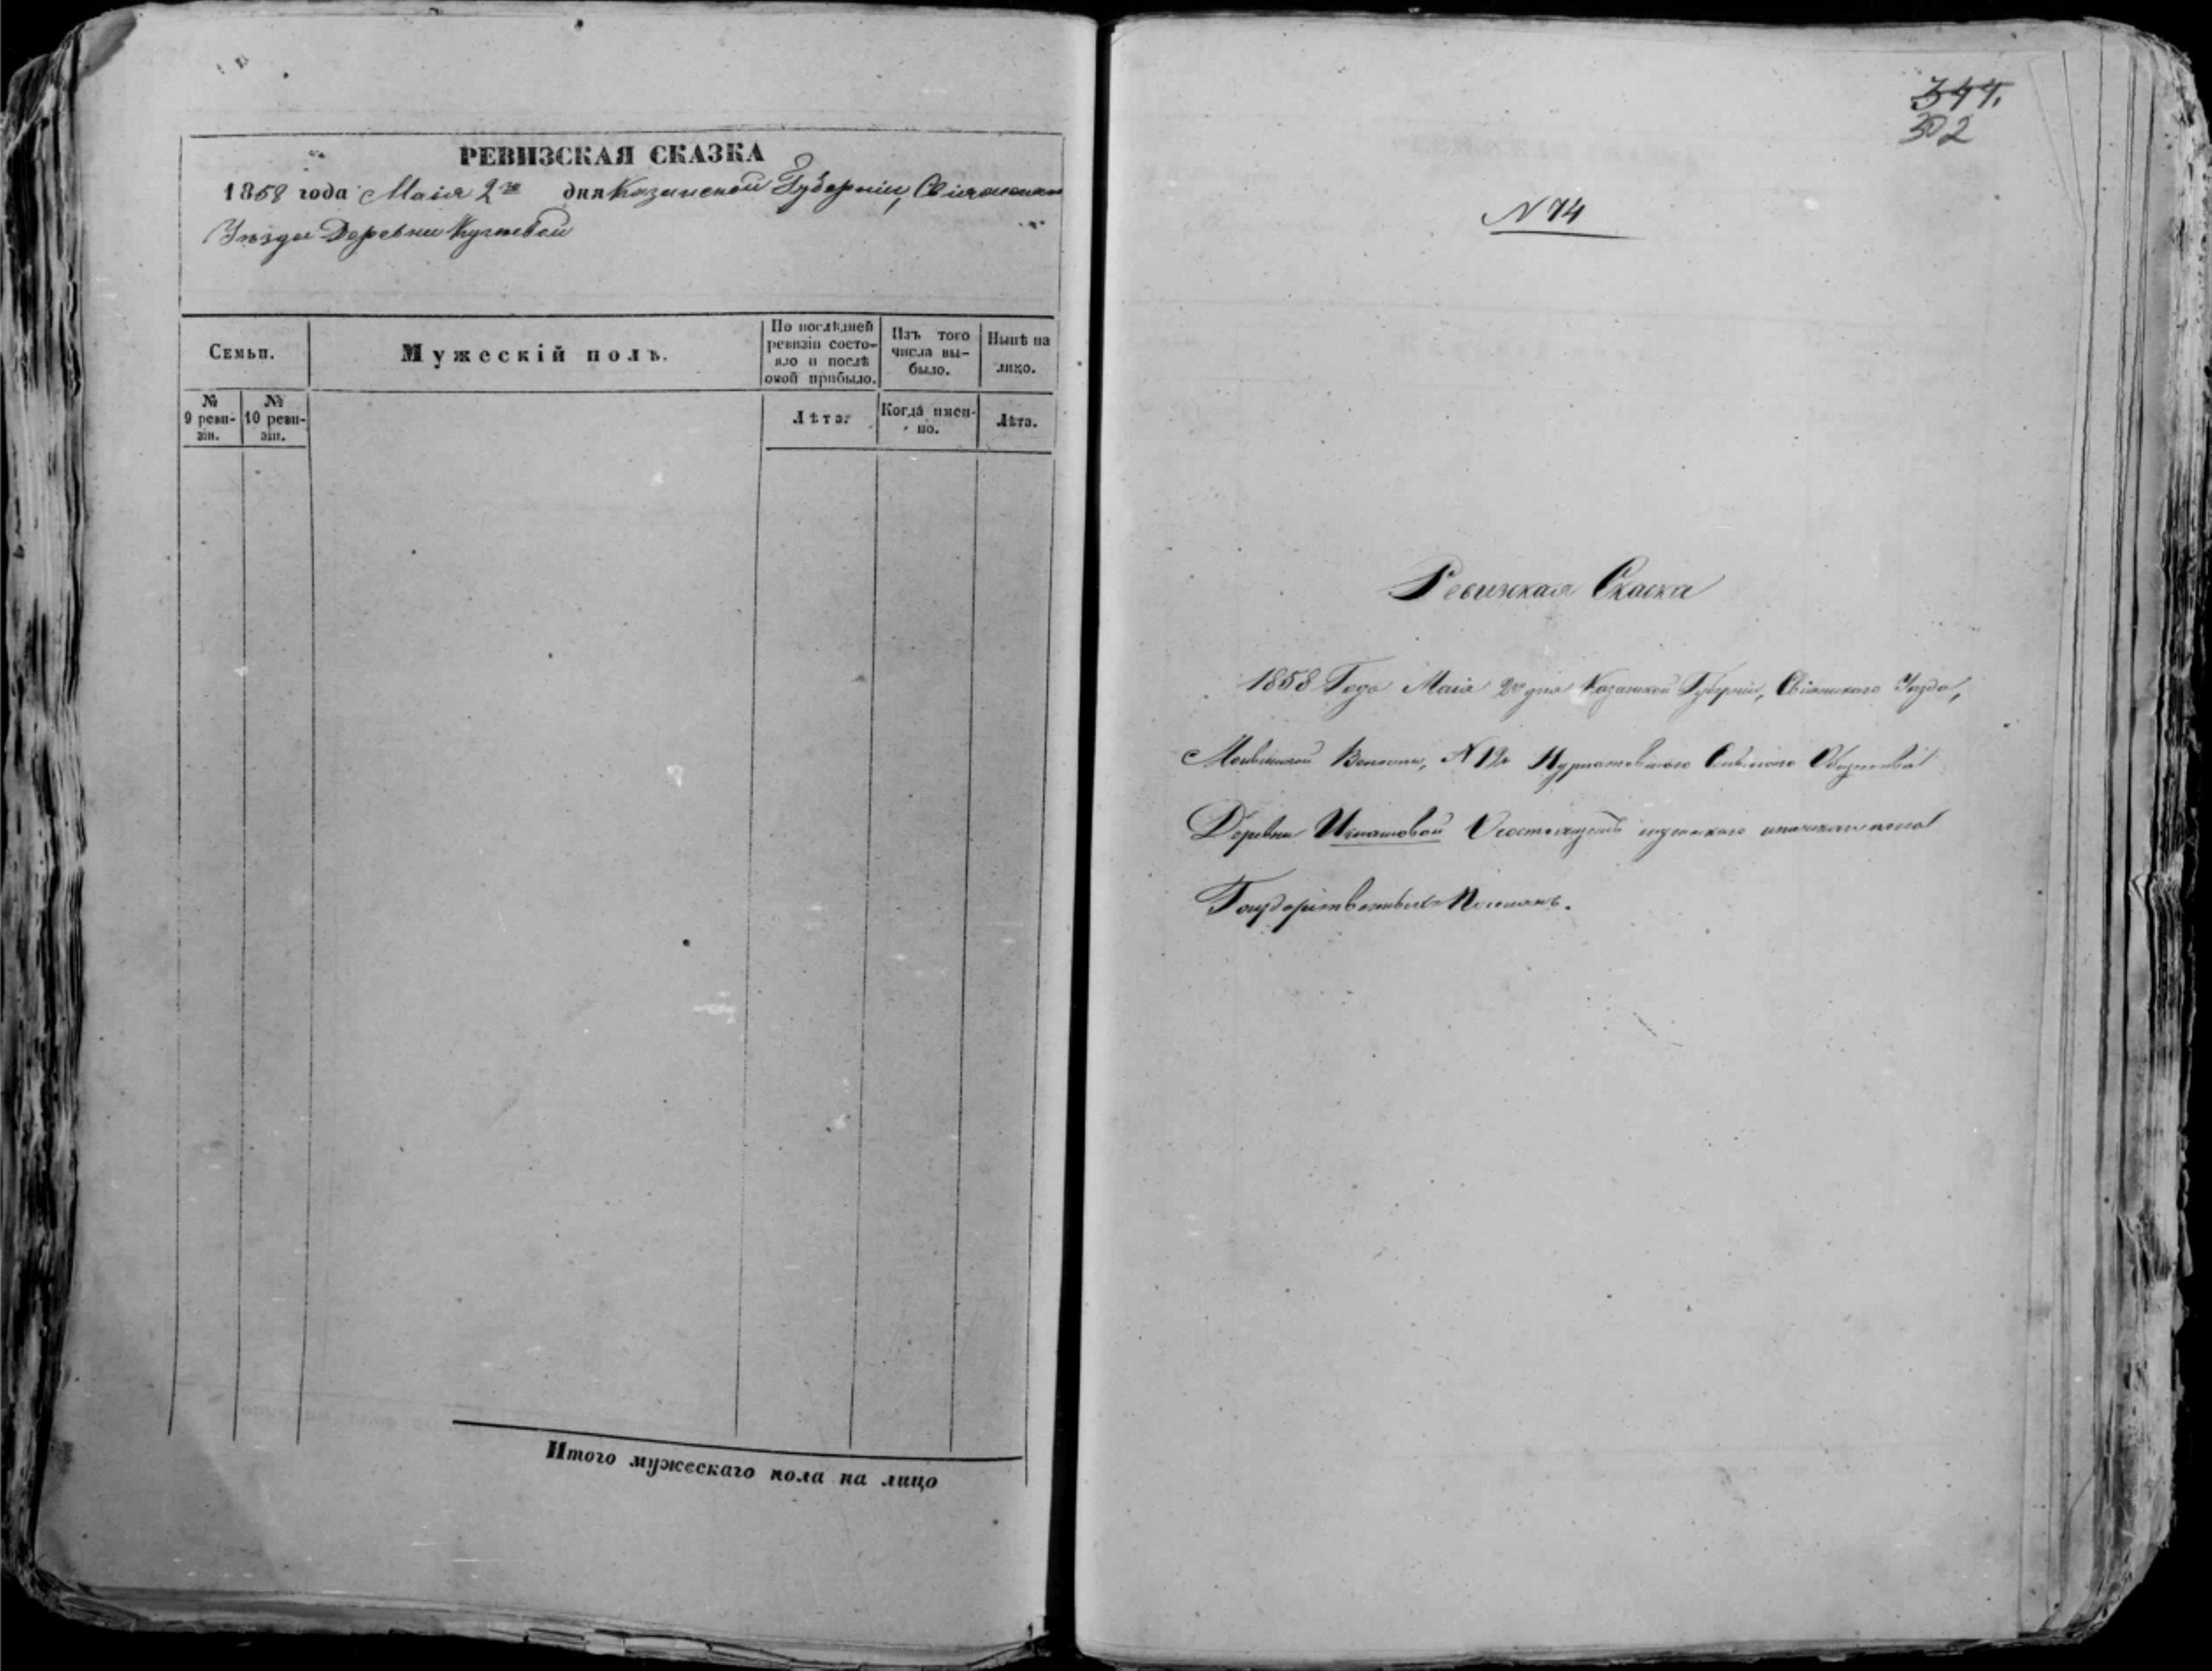 РЕВИЗСКАЯ СКАЗКА
1858 года Маія 2го дня Казанской Губерніи, Свіяжскаго
Уѣзда Деревни
Семьи.
Мужескій полъ.
По послѣдней ревизіи состояло и послѣ оной прибыло.
Изъ того числа выбыло.
Нынѣ на лицо.
№ 9 ревизіи.
№ 10 ревизіи.
Лѣта.
Когда именно.
Лѣта.
Итого мужескаго пола на лицо
344.
302
N 74
Ревизская Скаска
1858 Года Маія 2го дня Казанской Губерніи, Свіяжскаго Уѣзда,
Волости, N 12 Нурлатовскаго Сельскаго Общества
Деревни Игнатовой О состоящихъ мужскаго и женскаго пола
Государственныхъ Поселянъ.